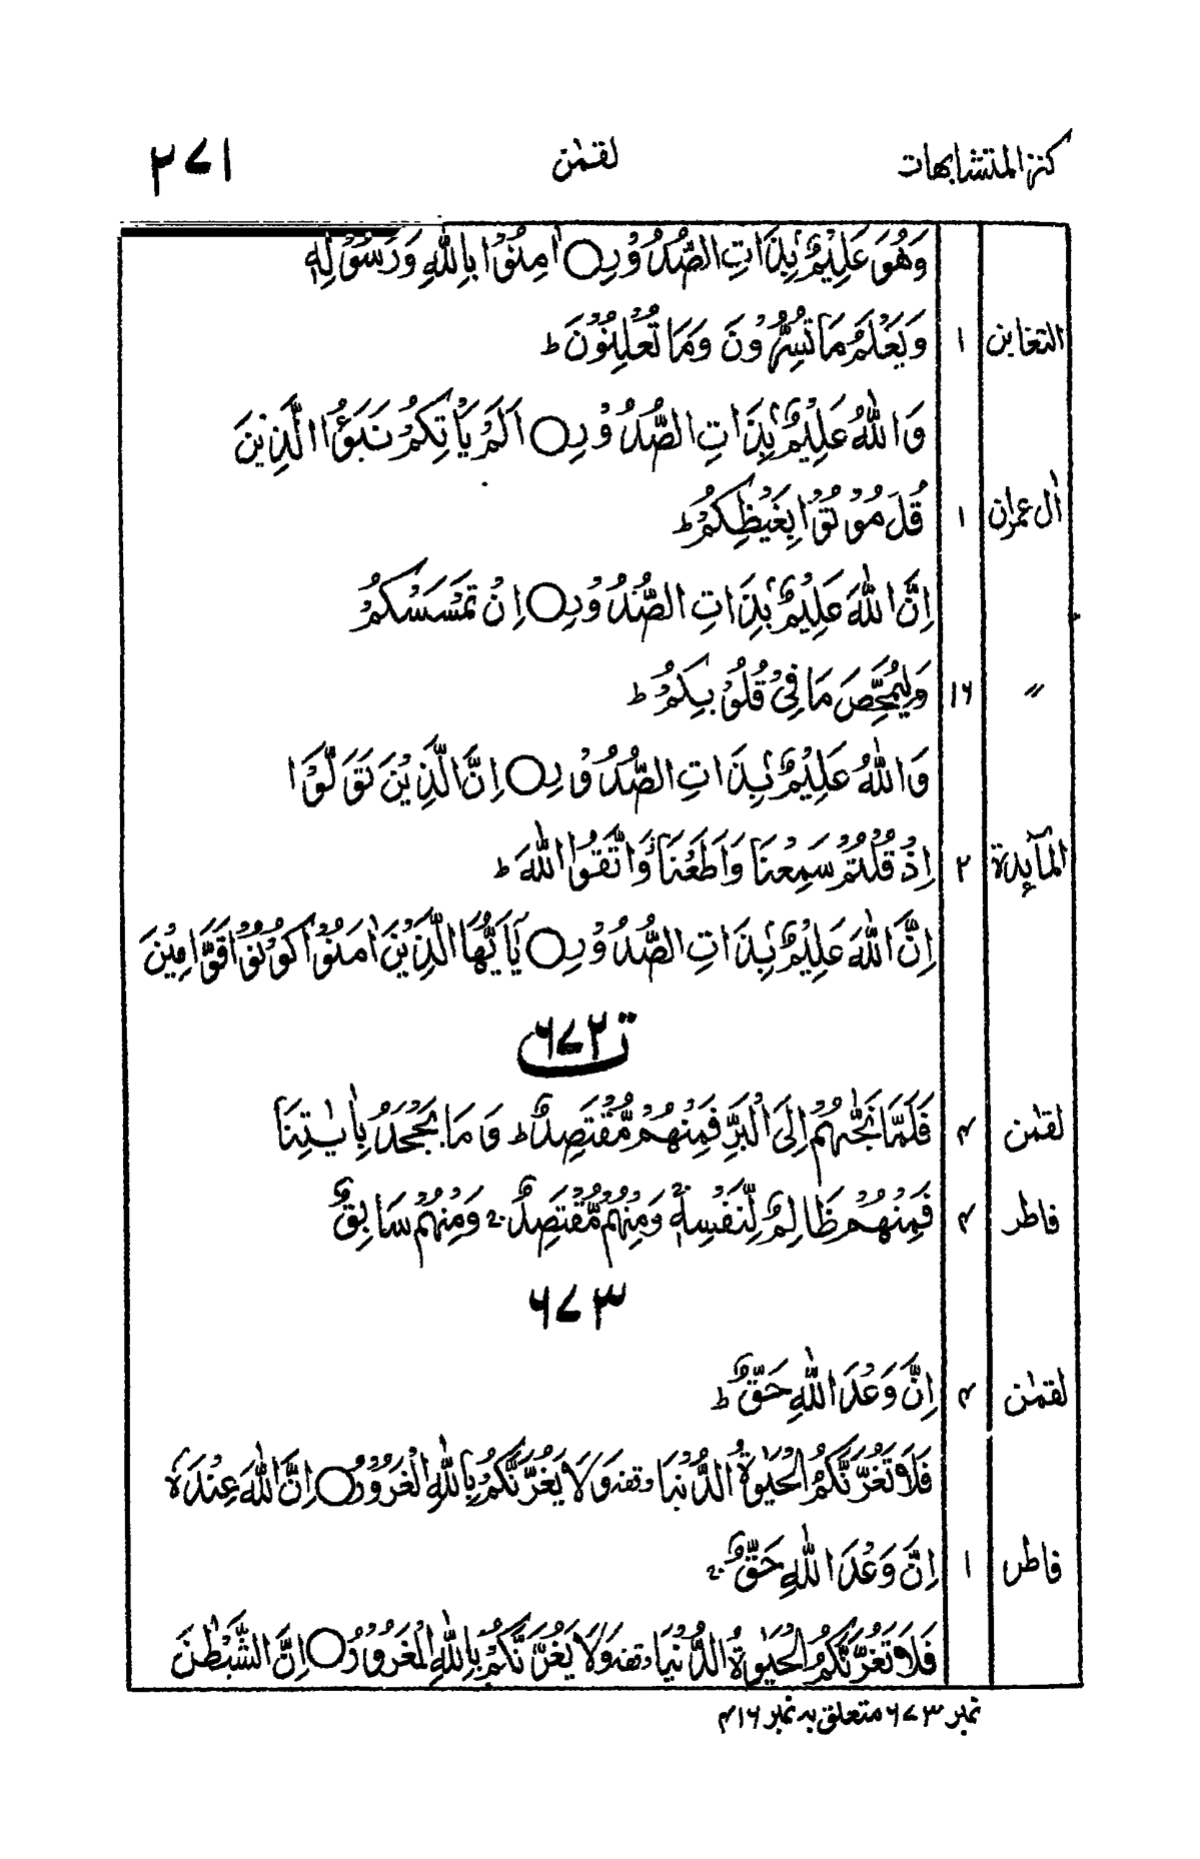 كنز المتشابهات لقمٰن ٢٧١
وَهُوَ عَلِيْمٌۢ بِذَاتِ الصُّدُوْرِ○ اٰمِنُوْا بِاللّٰهِ وَرَسُوْلِهٖ
التغابن ١ وَيَعْلَمُ مَا تُسِرُّوْنَ وَمَا تُعْلِنُوْنَ ؕ
وَاللّٰهُ عَلِيْمٌۢ بِذَاتِ الصُّدُوْرِ○ اَلَمْ يَاْتِكُمْ نَبَؤُا الَّذِيْنَ
اٰل عمران ١ قُلْ مُوْتُوْا بِغَيْظِكُمْ ؕ
اِنَّ اللّٰهَ عَلِيْمٌۢ بِذَاتِ الصُّدُوْرِ○ اِنْ تَمْسَسْكُمْ
〃 ١٦ وَلِيُمَحِّصَ مَا فِىْ قُلُوْبِكُمْ ؕ
وَاللّٰهُ عَلِيْمٌۢ بِذَاتِ الصُّدُوْرِ○ اِنَّ الَّذِيْنَ تَوَلَّوْا
المآئدة ٢ اِذْ قُلْتُمْ سَمِعْنَا وَاَطَعْنَا وَاتَّقُوا اللّٰهَ ؕ
اِنَّ اللّٰهَ عَلِيْمٌۢ بِذَاتِ الصُّدُوْرِ○ يٰٓاَيُّهَا الَّذِيْنَ اٰمَنُوْا كُوْنُوْا قَوّٰمِيْنَ
ت ٦٧٢
لقمٰن ۴ فَلَمَّا نَجّٰىهُمْ اِلَى الْبَرِّ فَمِنْهُمْ مُّقْتَصِدٌ ؕ وَمَا يَجْحَدُ بِاٰيٰتِنَا
فاطر ۴ فَمِنْهُمْ ظَالِمٌ لِّنَفْسِهٖ ۚ وَمِنْهُمْ مُّقْتَصِدٌ ۚ وَمِنْهُمْ سَابِقٌۢ
٦٧٣
لقمٰن ۴ اِنَّ وَعْدَ اللّٰهِ حَقٌّ ؕ
فَلَا تَغُرَّنَّكُمُ الْحَيٰوةُ الدُّنْيَا وقفه وَلَا يَغُرَّنَّكُمْ بِاللّٰهِ الْغَرُوْرُ○ اِنَّ اللّٰهَ عِنْدَهٗ
فاطر ١ اِنَّ وَعْدَ اللّٰهِ حَقٌّ ۚ
فَلَا تَغُرَّنَّكُمُ الْحَيٰوةُ الدُّنْيَا وقفه وَلَا يَغُرَّنَّكُمْ بِاللّٰهِ الْغَرُوْرُ○ اِنَّ الشَّيْطٰنَ
نمبر ٦٧٣ متعلق به نمبر ۴١٦